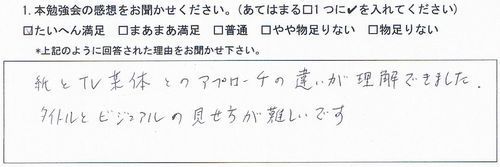 1. 本勉強会の感想をお聞かせください。(あてはまる□1つに✔を入れてください)
☑たいへん満足 □まあまあ満足 □普通 □やや物足りない □物足りない
*上記のように回答された理由をお聞かせ下さい。
紙とTV媒体とのアプローチの違いが理解できました.
タイトルとビジュアルの見せ方が難しいです